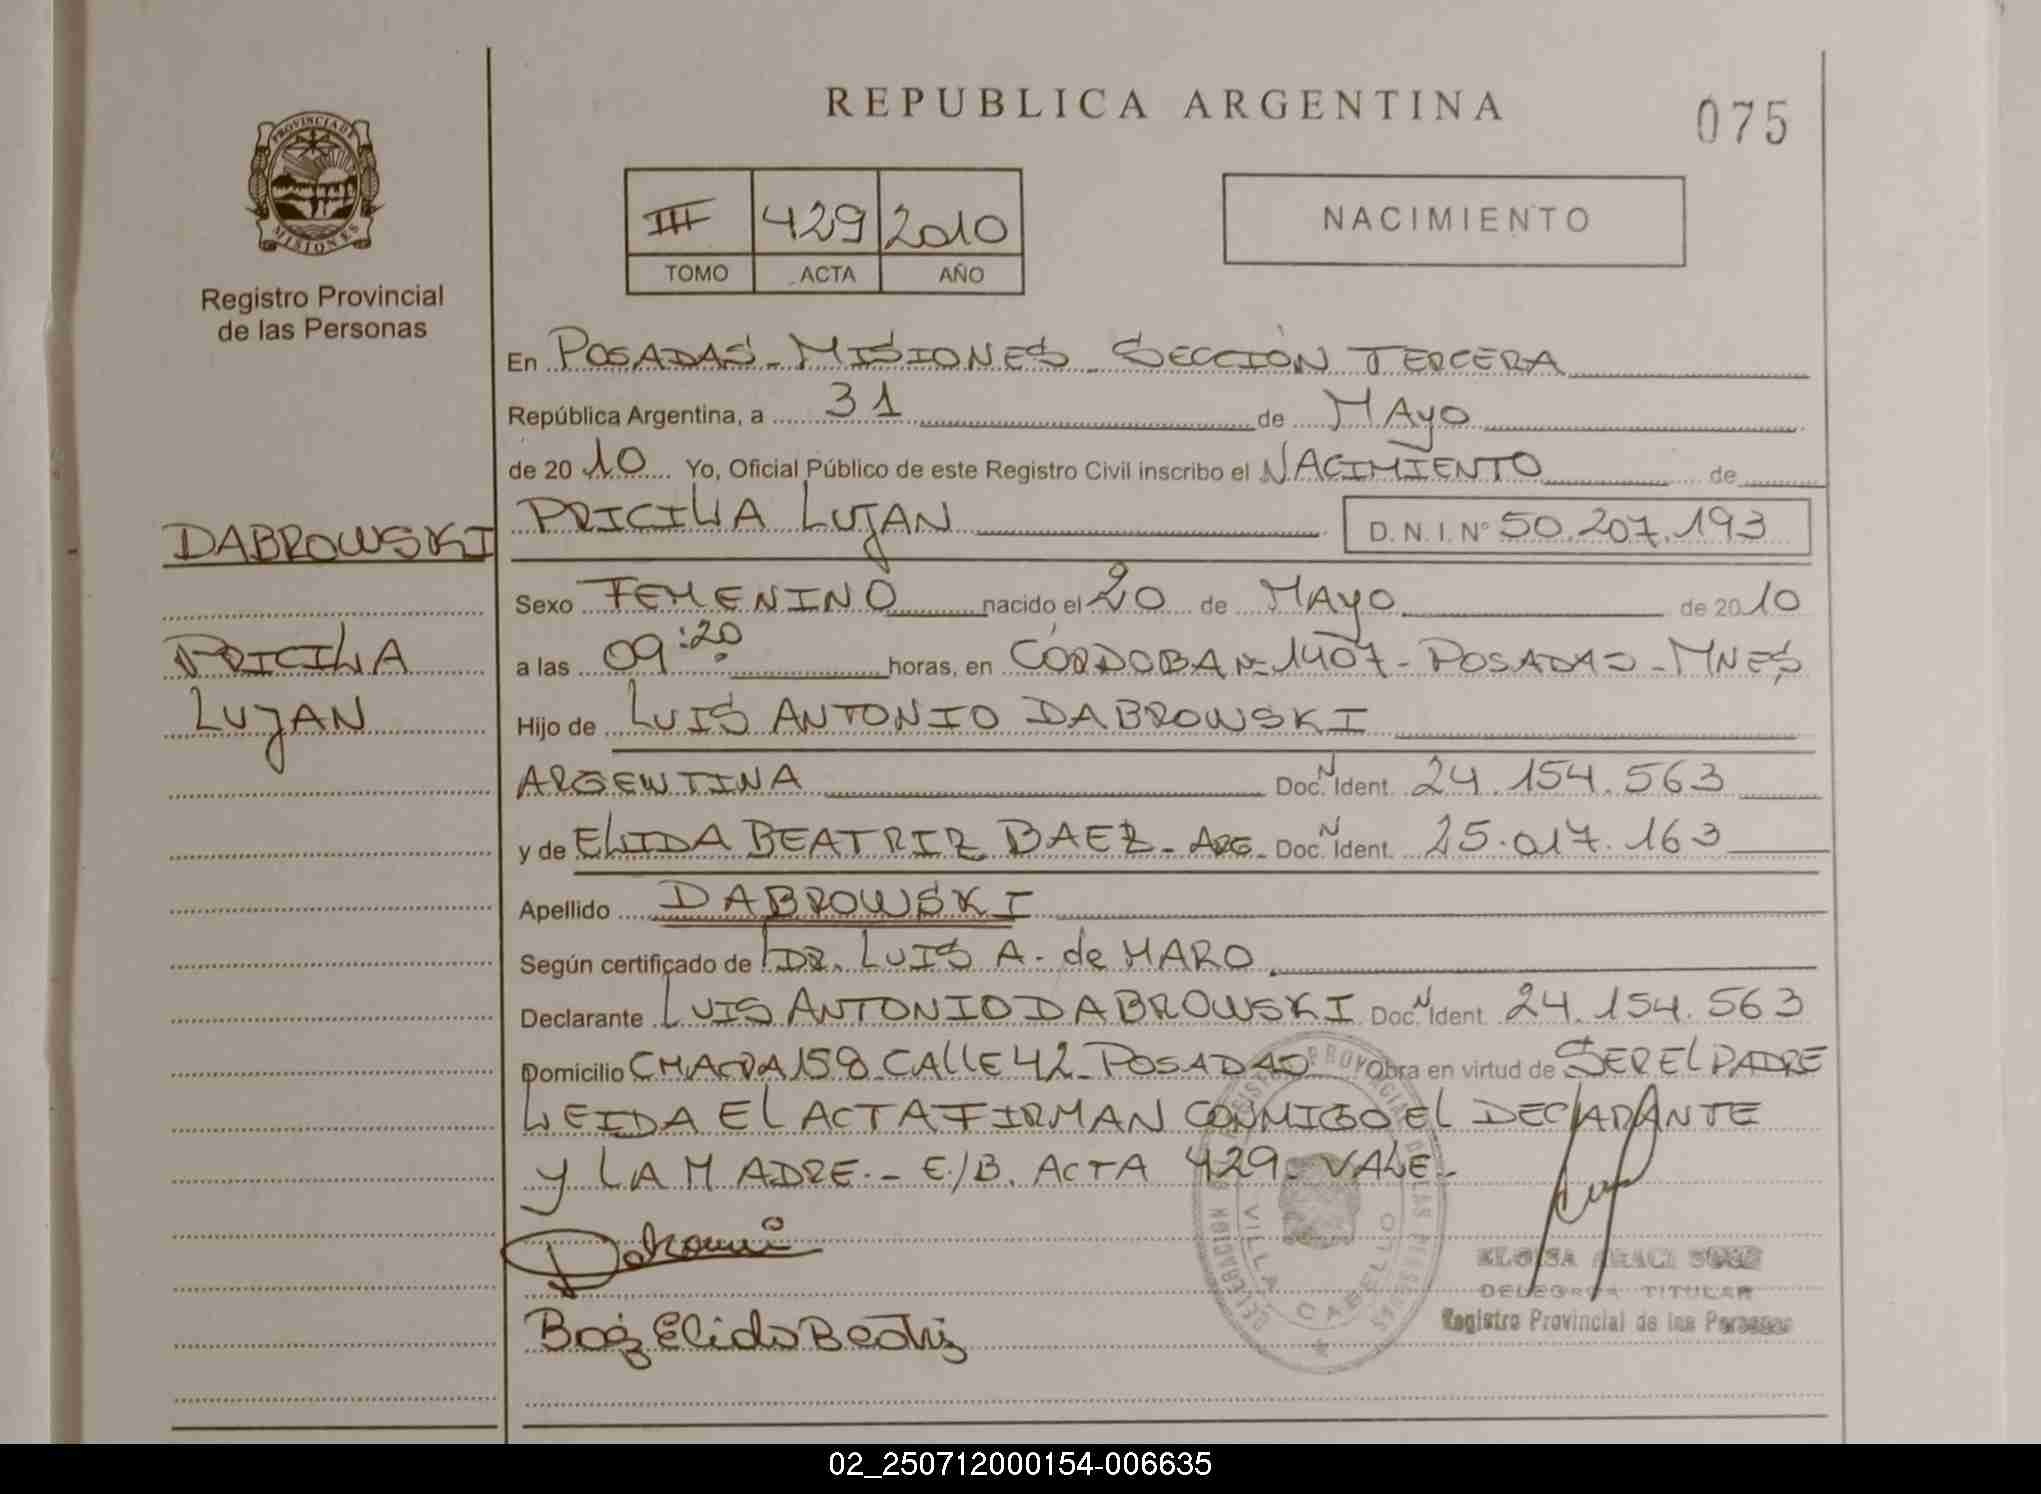 REPUBLICA ARGENTINA
075
PROVINCIA DE
MISIONES
Registro Provincial
de las Personas
III 429 2010
TOMO ACTA AÑO
NACIMIENTO
En POSADAS - MISIONES - SECCIÓN TERCERA
República Argentina, a 31 de MAYO
de 2010 Yo, Oficial Público de este Registro Civil inscribo el NACIMIENTO de
PRICILIA LUJAN D.N.I. Nº 50.207.193
DABROWSKI
PRICILIA
LUJAN
Sexo FEMENINO nacido el 20 de MAYO de 2010
a las 09:20 horas, en CÓRDOBA Nº 1407 - POSADAS - MNES
Hijo de LUIS ANTONIO DABROWSKI
ARGENTINA Doc. N Ident. 24.154.563
y de ELIDA BEATRIZ BAEZ - ARG - Doc. N Ident. 25.017.163
Apellido DABROWSKI
Según certificado de DR. LUIS A. de HARO
Declarante LUIS ANTONIO DABROWSKI Doc. N Ident. 24.154.563
Domicilio CHACRA 158 CALLE 42 - POSADAS Obra en virtud de SER EL PADRE
LEIDA EL ACTA FIRMAN CONMIGO EL DECLARANTE
Y LA MADRE.- E/B. ACTA 429. VALE-
Baez Elida Beatriz
VILLA CABELLO
DELEGADA TITULAR
Registro Provincial de las Personas
02_250712000154-006635